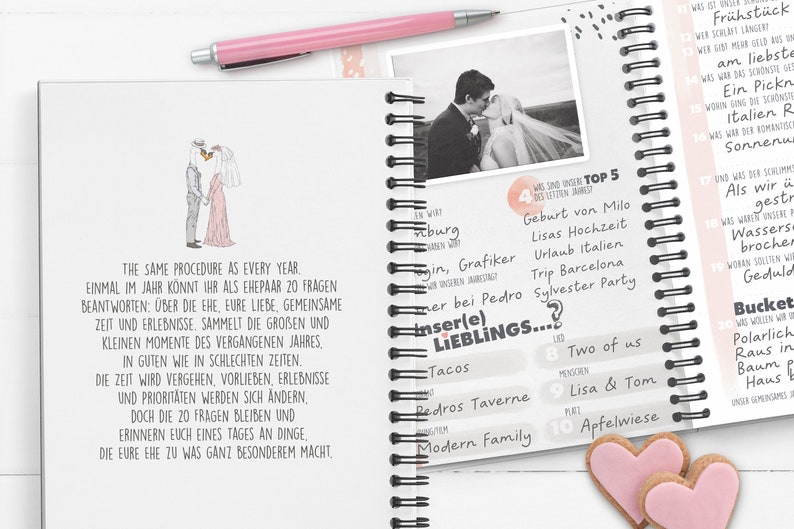 THE SAME PROCEDURE AS EVERY YEAR.
EINMAL IM JAHR KÖNNT IHR ALS EHEPAAR 20 FRAGEN
BEANTWORTEN: ÜBER DIE EHE, EURE LIEBE, GEMEINSAME
ZEIT UND ERLEBNISSE. SAMMELT DIE GROßEN UND
KLEINEN MOMENTE DES VERGANGENEN JAHRES,
IN GUTEN WIE IN SCHLECHTEN ZEITEN.
DIE ZEIT WIRD VERGEHEN, VORLIEBEN, ERLEBNISSE
UND PRIORITÄTEN WERDEN SICH ÄNDERN,
DOCH DIE 20 FRAGEN BLEIBEN UND
ERINNERN EUCH EINES TAGES AN DINGE,
DIE EURE EHE ZU WAS GANZ BESONDEREM MACHT.
4 WAS SIND UNSERE TOP 5
DES LETZTEN JAHRES?
Geburt von Milo
Lisas Hochzeit
Urlaub Italien
Trip Barcelona
Sylvester Party
EN WIR?
nburg
HABEN WIR?
gin, Grafiker
WIR UNSEREN JAHRESTAG?
ner bei Pedro
nser(e)
LiEBLiNGS...?
Tacos
RANT
Pedros Taverne
DUNG/FILM
Modern Family
LIED
8 Two of us
MENSCHEN
9 Lisa & Tom
PLATZ
10 Apfelwiese
11 WAS IST UNSER
Frühstück
12 WER SCHLÄFT LÄNGER?
13 WER GIBT MEHR GELD AUS
am liebste
14 WAS WAR DAS SCHÖNSTE
Ein Pickn
15 WOHIN GING DIE SCHÖNST
Italien R
16 WAS WAR DER ROMANTISC
Sonnenu
17 UND WAS DER SCHLIMM
Als wir ü
gestr
18 WAS WAREN UNSERE
Wassersc
brochen
19 WORAN SOLLTEN WI
Geduld
Bucket
20 WAS WOLLEN WIR
Polarlich
Raus in
Baum p
Haus b
UNSER GEMEINSAMES